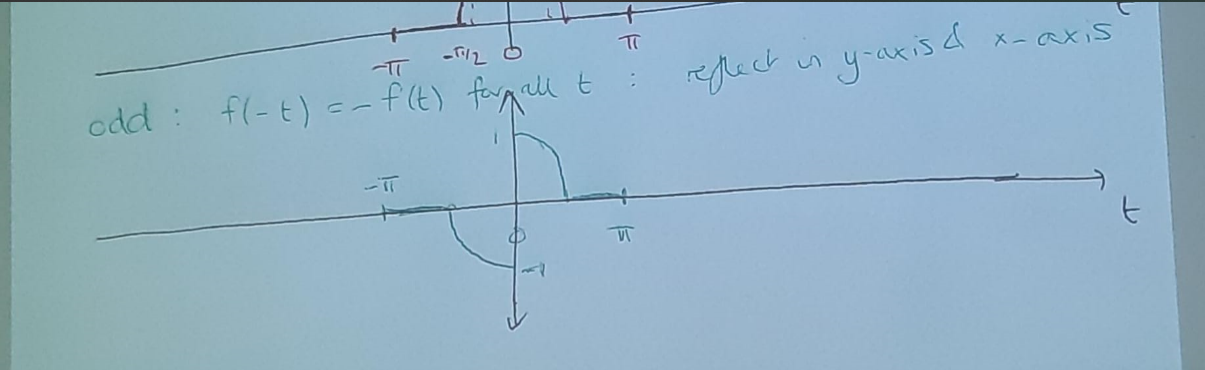 -π -π/2 0 π t
odd : f(-t) = -f(t) for all t : reflect in y-axis & x-axis
1
-π
0 π t
-1